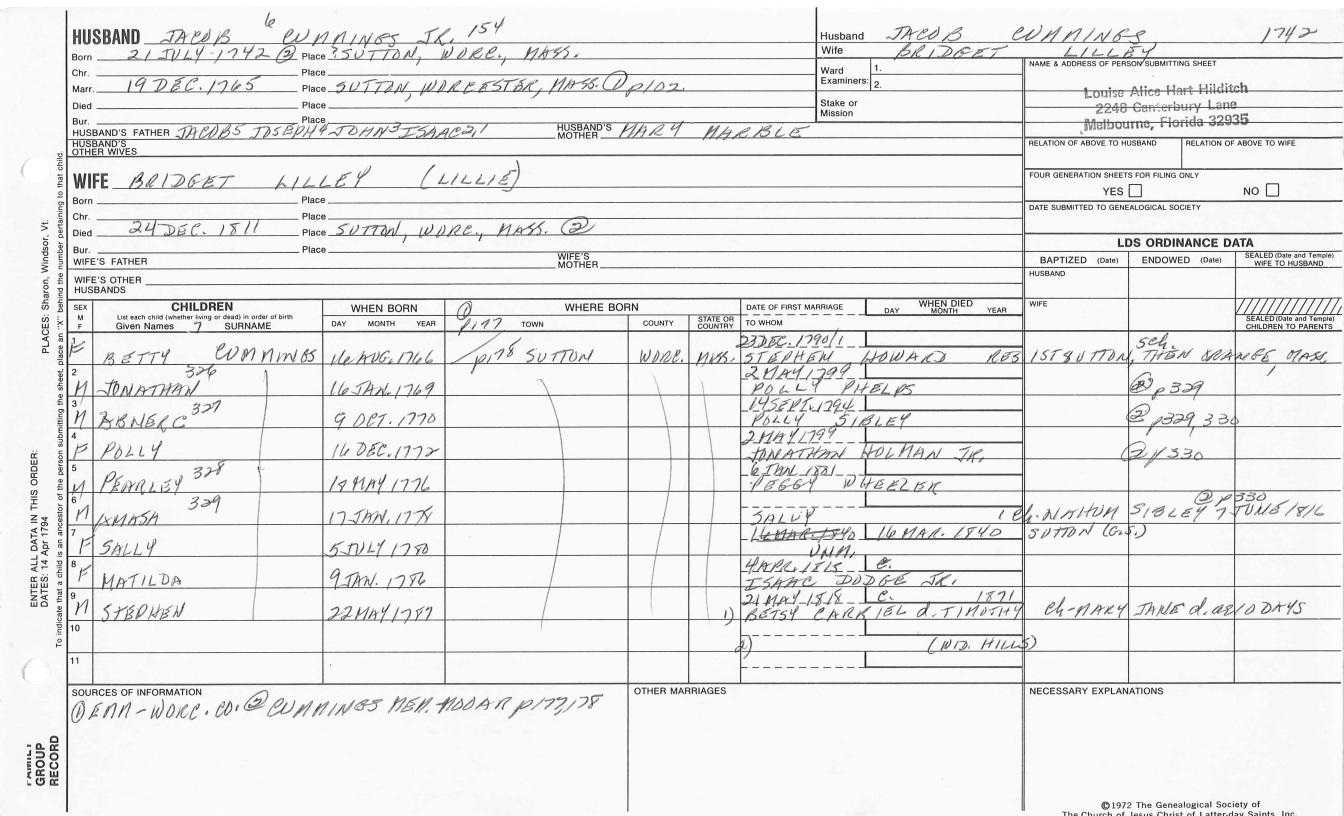 HUSBAND JACOB 6 CUMMINGS JR. 154
Born 21 JULY-1742 ② Place ?SUTTON, WORC., MASS.
Chr. Place
Marr. 19 DEC. 1765 Place SUTTON, WORCESTER, MASS. ① p102.
Died Place
Bur. Place
HUSBAND'S FATHER JACOB5 JOSEPH4 JOHN3 ISAAC2,1 HUSBAND'S MOTHER MARY MARBLE
HUSBAND'S OTHER WIVES
Husband JACOB CUMMINGS 1742
Wife BRIDGET LILLEY
Ward Examiners: 1.
2.
Stake or Mission
NAME & ADDRESS OF PERSON SUBMITTING SHEET
Louise Alice Hart Hilditch
2248 Canterbury Lane
Melbourne, Florida 32935
RELATION OF ABOVE TO HUSBAND RELATION OF ABOVE TO WIFE
FOUR GENERATION SHEETS FOR FILING ONLY
YES NO
DATE SUBMITTED TO GENEALOGICAL SOCIETY
WIFE BRIDGET LILLEY (LILLIE)
Born Place
Chr. Place
Died 24 DEC. 1811 Place SUTTON, WORC., MASS. ②
Bur. Place
WIFE'S FATHER WIFE'S MOTHER
WIFE'S OTHER HUSBANDS
LDS ORDINANCE DATA
BAPTIZED (Date) ENDOWED (Date) SEALED (Date and Temple) WIFE TO HUSBAND
HUSBAND
WIFE
SEALED (Date and Temple) CHILDREN TO PARENTS
SEX M F CHILDREN WHEN BORN WHERE BORN DATE OF FIRST MARRIAGE WHEN DIED
List each child (whether living or dead) in order of birth
Given Names 7 SURNAME DAY MONTH YEAR TOWN COUNTY STATE OR COUNTRY TO WHOM DAY MONTH YEAR
p177
23 DEC. 1790/1
1 F BETTY CUMMINGS 16 AUG. 1766 p178 SUTTON WORC. MASS. STEPHEN HOWARD RES 1ST SUTTON, THEN ORANGE, MASS.
2 MAY 1799
2 M JONATHAN 326 16 JAN. 1769 POLLY PHELPS ② p329
14 SEPT. 1794
3 M ABNER C 327 9 OCT. 1770 POLLY SIBLEY ② p329, 330
2 MAY 1799
4 F POLLY 16 DEC. 1772 JONATHAN HOLMAN JR. ② p330
6 JAN 1801
5 M PEARLEY 328 18 MAY 1776 PEGGY WHEELER
② p330
6 M AMASA 329 17 JAN. 1778 SALLY 1 Ch. NAHUM SIBLEY 7 JUNE 1816
16 MAR. 1840 16 MAR. 1840 SUTTON (G.S.)
7 F SALLY 5 JULY 1780 UNM.
4 APR. 1815 C.
8 F MATILDA 9 JAN. 1786 ISAAC DODGE JR.
21 MAY 1818 C. 1871
9 M STEPHEN 22 MAY 1787 1) BETSY CARRIEL d. TIMOTHY Ch-MARY JANE d. ae 10 DAYS
10 2) (WID. HILLS)
11
SOURCES OF INFORMATION
① EMM-WORC. CO. ② CUMMINGS MEM. MOOAR p177,178
OTHER MARRIAGES
NECESSARY EXPLANATIONS
©1972 The Genealogical Society of
The Church of Jesus Christ of Latter-day Saints, Inc.
ENTER ALL DATA IN THIS ORDER:
DATES: 14 Apr 1794 PLACES: Sharon, Windsor, Vt.
To indicate that a child is an ancestor of the person submitting the sheet, place an "X" behind the number pertaining to that child.
FAMILY GROUP RECORD